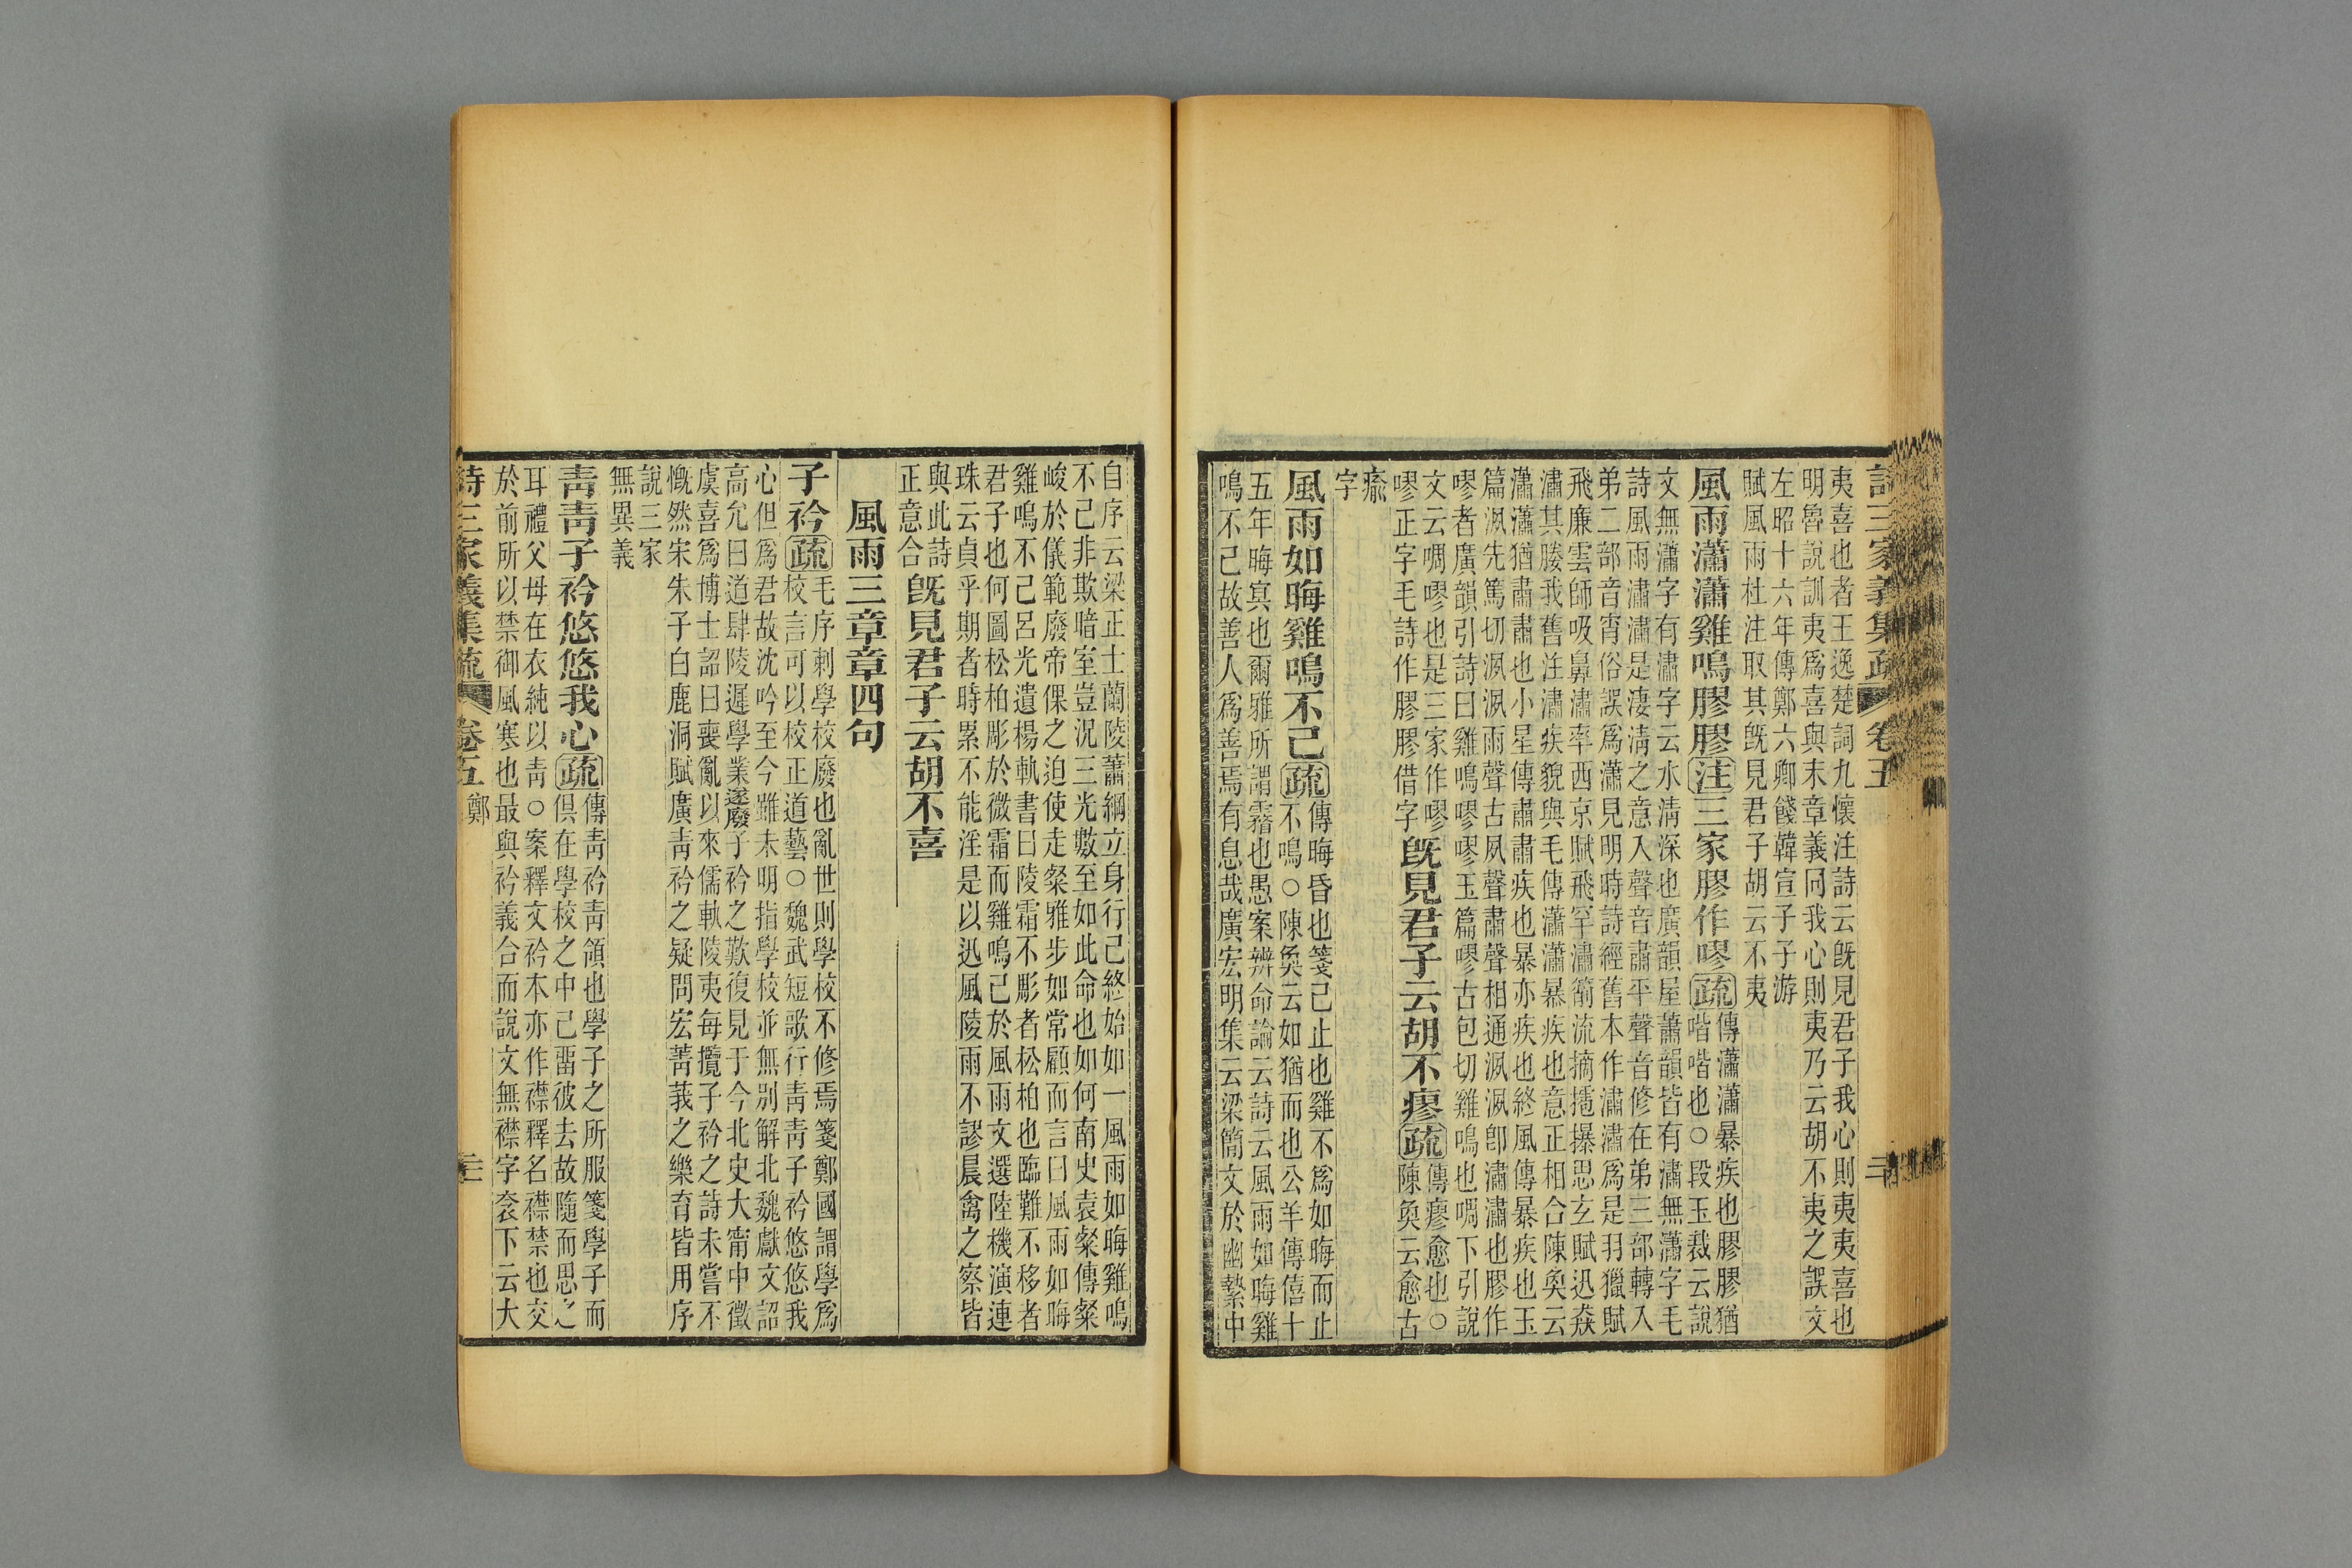 詩三家義集疏 卷五 三
夷喜也者王逸楚詞九懷注詩云旣見君子我心則夷夷喜也
明魯說訓夷爲喜與末章義同我心則夷乃云胡不夷之誤文
左昭十六年傳鄭六卿餞韓宣子子游
賦風雨杜注取其旣見君子胡云不夷
風雨瀟瀟雞鳴膠膠注三家膠作嘐疏傳瀟瀟暴疾也膠膠猶
喈喈也○段玉裁云說
文無瀟字有潚字云水淸深也廣韻屋蕭韻皆有潚無瀟字毛
詩風雨潚潚是淒淸之意入聲音肅平聲音修在弟三部轉入
弟二部音宵俗誤爲瀟見明時詩經舊本作潚潚爲是羽獵賦
飛廉雲師吸鼻潚率西京賦飛罕潚箾流摘思玄賦迅猋
潚其媵我舊注潚疾貌與毛傳瀟瀟暴疾也意正相合陳奐云
瀟瀟猶肅肅也小星傳肅肅疾也暴亦疾也終風傳暴疾也玉
篇㴋先篤切㴋㴋雨聲古夙聲肅聲相通㴋㴋卽潚潚也膠作
嘐者廣韻引詩曰雞鳴嘐嘐玉篇嘐古包切雞鳴也啁下引說
文云啁嘐也是三家作嘐
嘐正字毛詩作膠膠借字
旣見君子云胡不瘳疏傳瘳愈也○
陳奐云愈古
瘉
字
風雨如晦雞鳴不已疏傳晦昏也箋已止也雞不爲如晦而止
不鳴○陳奐云如猶而也公羊傳僖十
五年晦冥也爾雅所謂霿也愚案辨命論云詩云風雨如晦雞
鳴不已故善人爲善焉有息哉廣宏明集云梁簡文於幽縶中
自序云梁正士蘭陵蕭綱立身行己終始如一風雨如晦雞鳴
不已非欺暗室豈況三光數至如此命也如何南史袁粲傳粲
峻於儀範廢帝倮之迫使走粲雅步如常顧而言曰風雨如晦
雞鳴不已呂光遺楊軌書曰陵霜不彫者松柏也臨難不移者
君子也何圖松柏彫於微霜而雞鳴已於風雨文選陸機演連
珠云貞乎期者時累不能淫是以迅風陵雨不謬晨禽之察皆
與此詩
正意合
旣見君子云胡不喜
風雨三章章四句
子衿疏毛序刺學校廢也亂世則學校不修焉箋鄭國謂學爲
校言可以校正道藝○魏武短歌行靑靑子衿悠悠我
心但爲君故沈吟至今雖未明指學校並無別解北魏獻文詔
高允曰道肆陵遲學業遂廢子衿之歎復見于今北史大甯中徵
虞喜爲博士詔曰喪亂以來儒軌陵夷每攬子衿之詩未嘗不
慨然宋朱子白鹿洞賦廣靑衿之疑問宏菁莪之樂育皆用序
說三家
無異義
靑靑子衿悠悠我心疏傳靑衿靑領也學子之所服箋學子而
俱在學校之中己畱彼去故隨而思之
耳禮父母在衣純以靑○案釋文衿本亦作襟釋名襟禁也交
於前所以禁御風寒也最與衿義合而說文無襟字衾下云大
詩三家義集疏 卷五 鄭 三